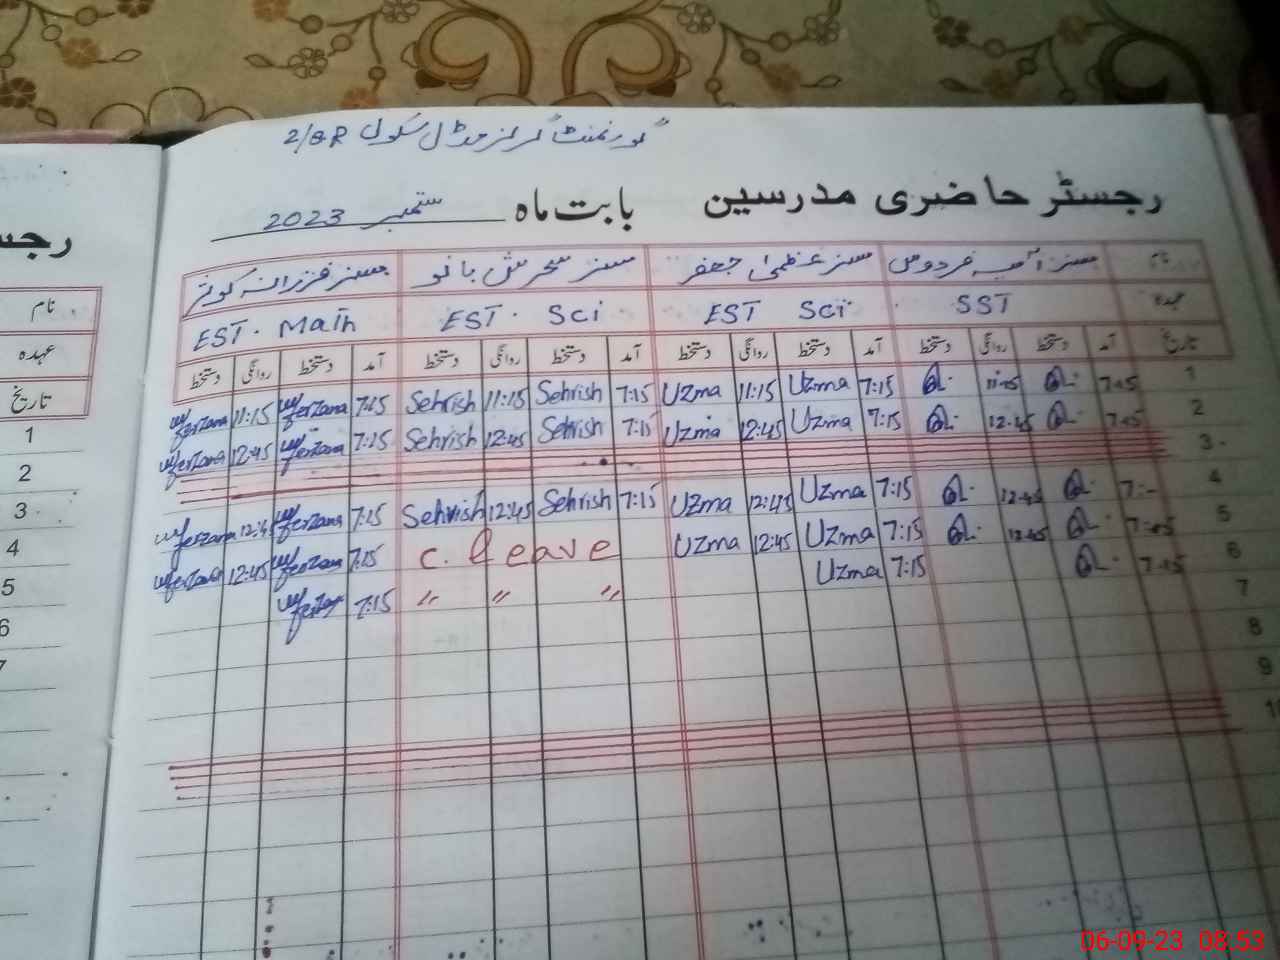 گورنمنٹ گرلز مڈل سکول 2/8R
رجسٹر حاضری مدرسین بابت ماہ ستمبر 2023
نام مسز فردوس مسز عظمیٰ جعفر مسز سحرش بانو مسز فرزانہ کوثر
عہدہ SST EST Sci EST. Sci EST. Math
تاریخ آمد دستخط روانگی دستخط آمد دستخط روانگی دستخط آمد دستخط روانگی دستخط آمد دستخط روانگی دستخط
1 7:15 11:15 7:15 Uzma 11:15 Uzma 7:15 Sehrish 11:15 Sehrish 7:15 ferzana 11:15 ferzana
2 7:15 12:45 7:15 Uzma 12:45 Uzma 7:15 Sehrish 12:45 Sehrish 7:15 ferzana 12:45 ferzana
3
4 12:45 7:15 Uzma 12:45 Uzma 7:15 Sehrish 12:45 Sehrish 7:15 ferzana 12:45 ferzana
5 7:15 12:45 7:15 Uzma 12:45 Uzma C. leave 7:15 ferzana 12:45 ferzana
6 7:15 7:15 Uzma " " " 7:15
7
8
9
10
رجس
نام
عہدہ
تاریخ
1
2
3
4
5
6
7
06-09-23 08:53